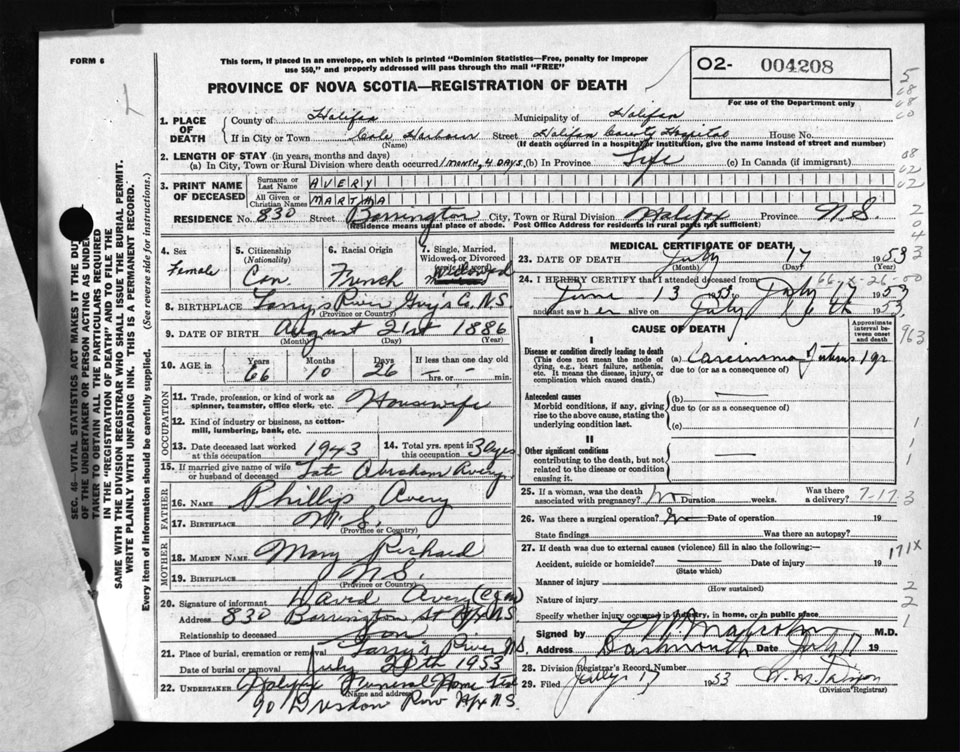 FORM 6
This form, if placed in an envelope, on which is printed "Dominion Statistics—Free, penalty for improper
use $50," and properly addressed will pass through the mail "FREE"
02- 004208
For use of the Department only
PROVINCE OF NOVA SCOTIA—REGISTRATION OF DEATH
1. PLACE OF DEATH
County of Halifax Municipality of Halifax
If in City or Town Cole Harbour Street Halifax County Hospital House No.
(Name) (If death occurred in a hospital or institution, give the name instead of street and number)
2. LENGTH OF STAY (in years, months and days)
(a) In City, Town or Rural Division where death occurred 1 MONTH, 4 DAYS, (b) In Province Life (c) In Canada (if immigrant)
3. PRINT NAME OF DECEASED
Surname or Last Name AVERY
All Given or Christian Names MARTHA
RESIDENCE No. 830 Street Barrington City, Town or Rural Division Halifax Province N.S.
(Residence means usual place of abode. Post Office Address for residents in rural parts not sufficient)
4. Sex Female
5. Citizenship (Nationality) Can.
6. Racial Origin French
7. Single, Married, Widowed or Divorced (write the word) Widowed
8. BIRTHPLACE Larry's River Guy's Co. N.S.
(Province or Country)
9. DATE OF BIRTH August 21st 1886
(Month) (Day) (Year)
10. AGE in Years 66 Months 10 Days 26 If less than one day old
hrs. or min.
OCCUPATION
11. Trade, profession, or kind of work as spinner, teamster, office clerk, etc. Housewife
12. Kind of industry or business, as cotton-mill, lumbering, bank, etc.
13. Date deceased last worked at this occupation 1943
14. Total yrs. spent in this occupation 30 yrs
15. If married give name of wife or husband of deceased Late Abraham Avery
FATHER
16. NAME Phillip Avery
17. BIRTHPLACE N.S.
(Province or Country)
MOTHER
18. MAIDEN NAME Mary Richard
19. BIRTHPLACE N.S.
(Province or Country)
20. Signature of informant David Avery
Address 830 Barrington St Hfx N.S.
Relationship to deceased Son
21. Place of burial, cremation or removal Larry's River N.S.
Date of burial or removal July 20th 1953
22. UNDERTAKER Halifax Funeral Home Ltd
(Name and address)
90 Row Hfx N.S.
MEDICAL CERTIFICATE OF DEATH
23. DATE OF DEATH July 17 1953
(Month) (Day) (Year)
24. I HEREBY CERTIFY that I attended deceased from
June 13 1953 to July 1953
and last saw her alive on July 1953.
CAUSE OF DEATH
Approximate interval between onset and death
I
Disease or condition directly leading to death
(This does not mean the mode of dying, e.g., heart failure, asthenia, etc. It means the disease, injury, or complication which caused death.)
(a) Carcinoma of uterus 1 yr
due to (or as a consequence of)
Antecedent causes
Morbid conditions, if any, giving rise to the above cause, stating the underlying condition last.
(b)
due to (or as a consequence of)
(c)
II
Other significant conditions
contributing to the death, but not related to the disease or condition causing it.
25. If a woman, was the death associated with pregnancy? Duration weeks. Was there a delivery?
7-17 3
26. Was there a surgical operation? Date of operation 19
State findings Was there an autopsy?
27. If death was due to external causes (violence) fill in also the following:—
Accident, suicide or homicide? Date of injury 19
(State which)
171X
Manner of injury
(How sustained)
Nature of injury
Specify whether injury occurred in industry, in home, or in public place
Signed by M.D.
Address Dartmouth Date July 17 19
28. Division Registrar's Record Number
29. Filed July 17 1953
(Division Registrar)
SEC. 46—VITAL STATISTICS ACT MAKES IT THE DU
OF THE UNDERTAKER OR PERSON ACTING AS UNDER
TAKER TO OBTAIN ALL THE PARTICULARS REQUIRED
IN THE "REGISTRATION OF DEATH" AND TO FILE THE
SAME WITH THE DIVISION REGISTRAR WHO SHALL ISSUE THE BURIAL PERMIT.
WRITE PLAINLY WITH UNFADING INK. THIS IS A PERMANENT RECORD.
Every item of information should be carefully supplied. (See reverse side for instructions.)